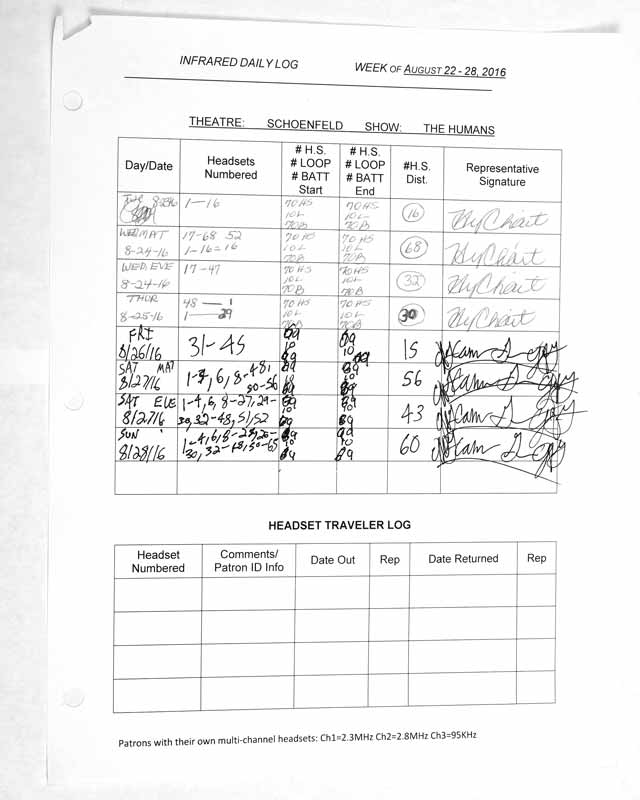 INFRARED DAILY LOG WEEK OF AUGUST 22 - 28, 2016
THEATRE: SCHOENFELD SHOW: THE HUMANS
Day/Date
Headsets
Numbered
# H.S.
# LOOP
# BATT
Start
# H.S.
# LOOP
# BATT
End
#H.S.
Dist.
Representative
Signature
1-16
70 HS
10 L
70B
70 HS
10 L
70B
16
WED MAT
8-24-16
17-68 52
1-16=16
70 HS
10 L
70B
70 HS
10 L
70B
68
WED, EVE
8-24-16
17-47
70 HS
10 L
70B
70 HS
10 L
70B
32
THUR
8-25-16
48 — 1
1 — 29
70 HS
10 L
70B
70 HS
10 L
70B
30
FRI
8/26/16
31-45
15
SAT MAT
8/27/16
50-56
56
SAT EVE
8/27/16
1-4, 6, 8-27, 29-
30, 32-48, 51, 52
43
SUN
8/28/16
60
HEADSET TRAVELER LOG
Headset
Numbered
Comments/
Patron ID Info
Date Out
Rep
Date Returned
Rep
Patrons with their own multi-channel headsets: Ch1=2.3MHz Ch2=2.8MHz Ch3=95KHz